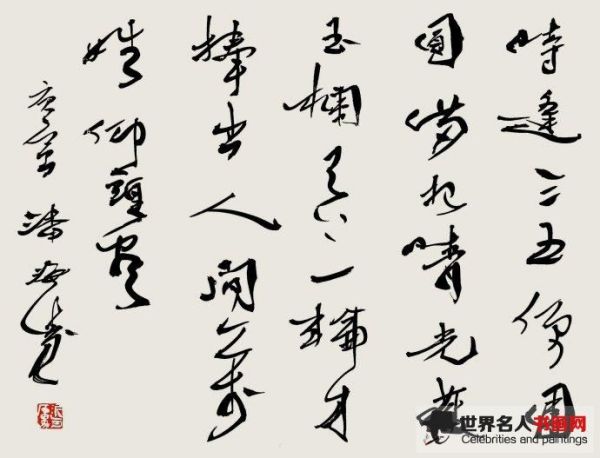 時逢三五便團
圓滿把晴光護
玉欄天上一輪才
捧出人間萬
姓仰頭看
庚寅 潘
世界名人书画网
Celebrities and paintings